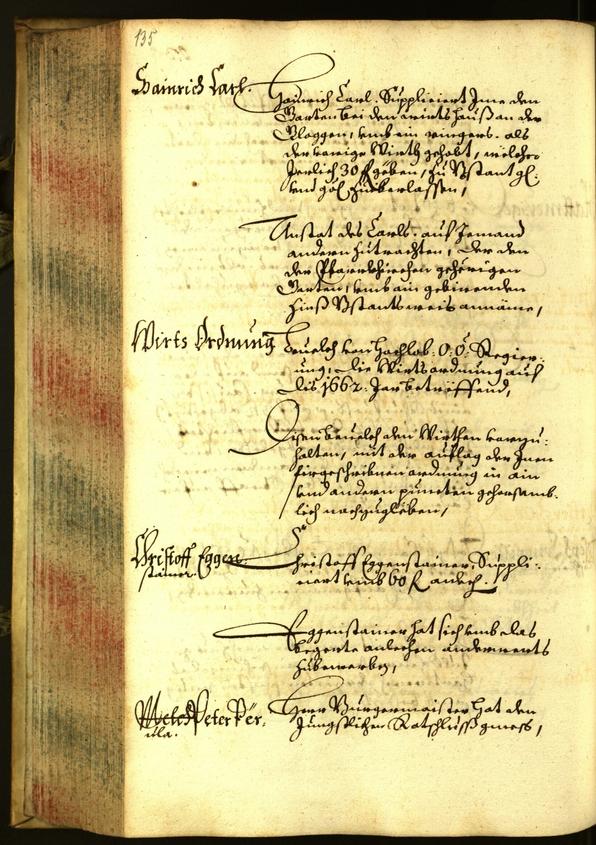 135
Hainrich Carl.
Hainrich Carl. Suppliciert Ime den
Garten bei den wirtshauß an der
Ploggen, umb ein ringers. als
der vorige Wirth gehabt, welcher
Jerlich 30 f geben, zu Bstant gl:
und gdl. zuüberlassen,
Anstat des Carls. auf Jemand
andern zutrachten, Der den
der Pfaarrkhirchen gehörigen
Garten, umb ain gebirenden
Zinß Bstantsweis annäme,
Wirts Ordnung
Beuelch von Hochlob: O: Ö: Regier:
ung, die Wirtsordnung auf
dis 1662. Jar betreffend,
Disen beuelch den Wirthen vorzu:
halten, mit der auflag der Inen
firgeschribnen ordnung in ain
und andern puncten gehorsamb:
lich nachzugleben,
Christoff Eggen:
stainer.
Christoff Eggenstainer. Suppli:
ciert umb 60 R anlech.
Eggenstainer hat sich umb das
begerte anlechen anderwerts
zubewerben,
Peter Per:
Herr Burgermaister hat den
Jungstlichen Ratschlussß gmess,